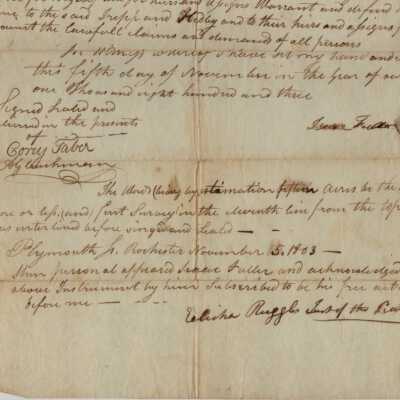 and assigns Warrant and defend
to the said Joseph and Hedley and to their heirs and assigns
against the lawfull claims and demands of all persons
In Witness whereof I have set my hand and
this fifth day of November in the year of our
one thousand eight hundred and three
Signed Sealed and
delivered in the presents
of
Isaac Fuller
Corry Taber
The Words (being) by estimation fifteen acres be the
ore or less, (and) first Survey in the eleventh line from the top
was interlined before singed and Seald
Plymouth Ss. Rochester November 5. 1803
then personal appeard Isaac Fuller and acknowledged
above Instrument by him Subscribed to be his free act
before me
Elisha Ruggles Just of the Peac